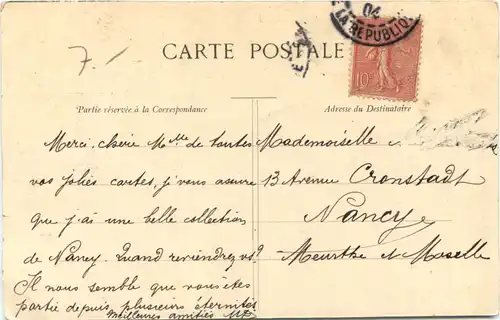 7.-
04
LA REPUBLIQ
CARTE POSTALE
10
Partie réservée à la Correspondance
Adresse du Destinataire
Merci, chère Mlle de toutes
vos jolies cartes, je vous assure
que j'ai une belle collection
de Nancy. Quand reviendrez vs?
Il nous semble que vous êtes
partie depuis plusieurs éternités
Meilleures amitiés
Mademoiselle
13 Avenue Cronstadt
Nancy
Meurthe et Moselle